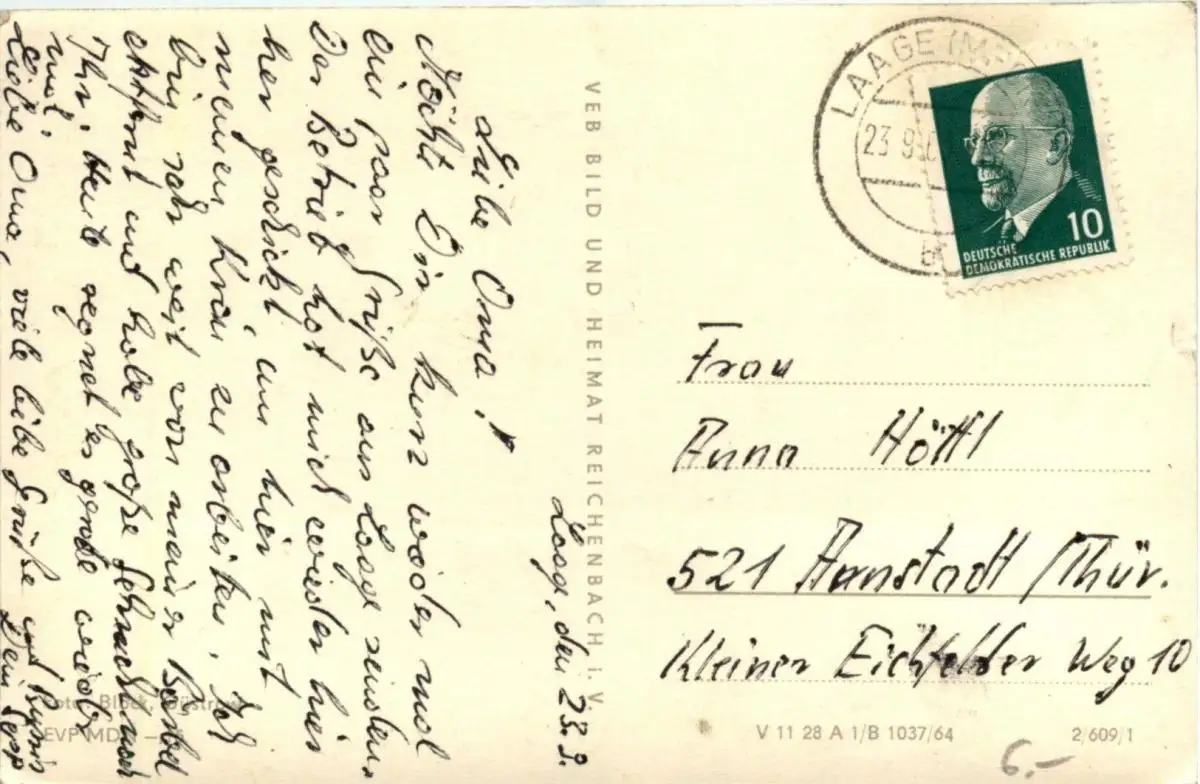 Laage, den 23.9.
Liebe Oma!
Möcht Dir kurz wieder mal
ein paar Grüße aus Laage senden.
Der Betrieb hat mich wieder hier
her geschickt, um hier mit
meinem Kran zu arbeiten. Ich
bin sehr weit von meiner Bärbel
entfernt und habe große Sehnsucht nach
Ihr. Heute regnet es gerade wieder
mal.
Liebe Oma, viele liebe Grüße und
Dein Sepp
VEB BILD UND HEIMAT REICHENBACH i. V.
Foto: Block, Güstrow
EVP MDN
LAAGE (M
23.9.
b
10
DEUTSCHE
DEMOKRATISCHE REPUBLIK
Frau
Anna Höttl
521 Arnstadt /Thür.
Kleiner Eichfelder Weg 10
V 11 28 A 1/B 1037/64
2/609/1
6.–